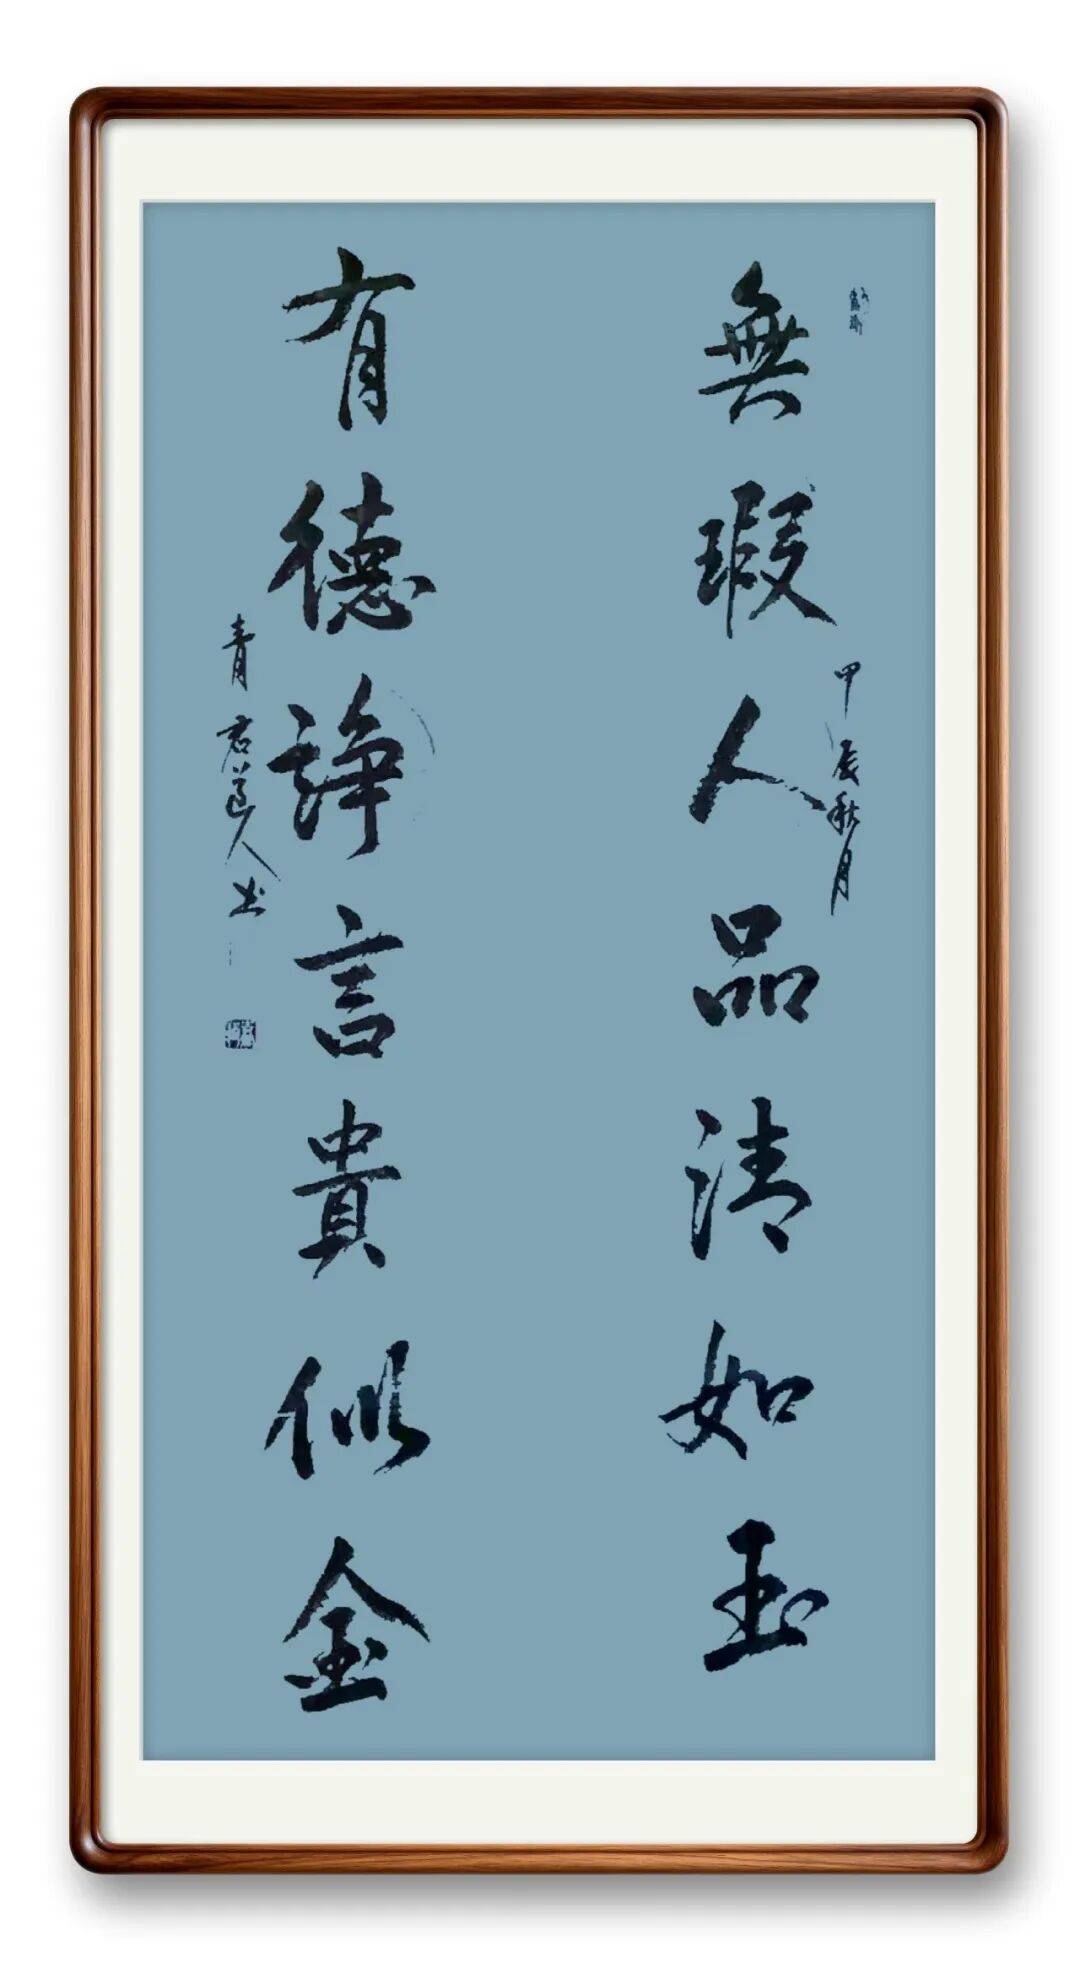 無瑕人品清如玉
甲辰秋月
有德諍言貴似金
青君道人书